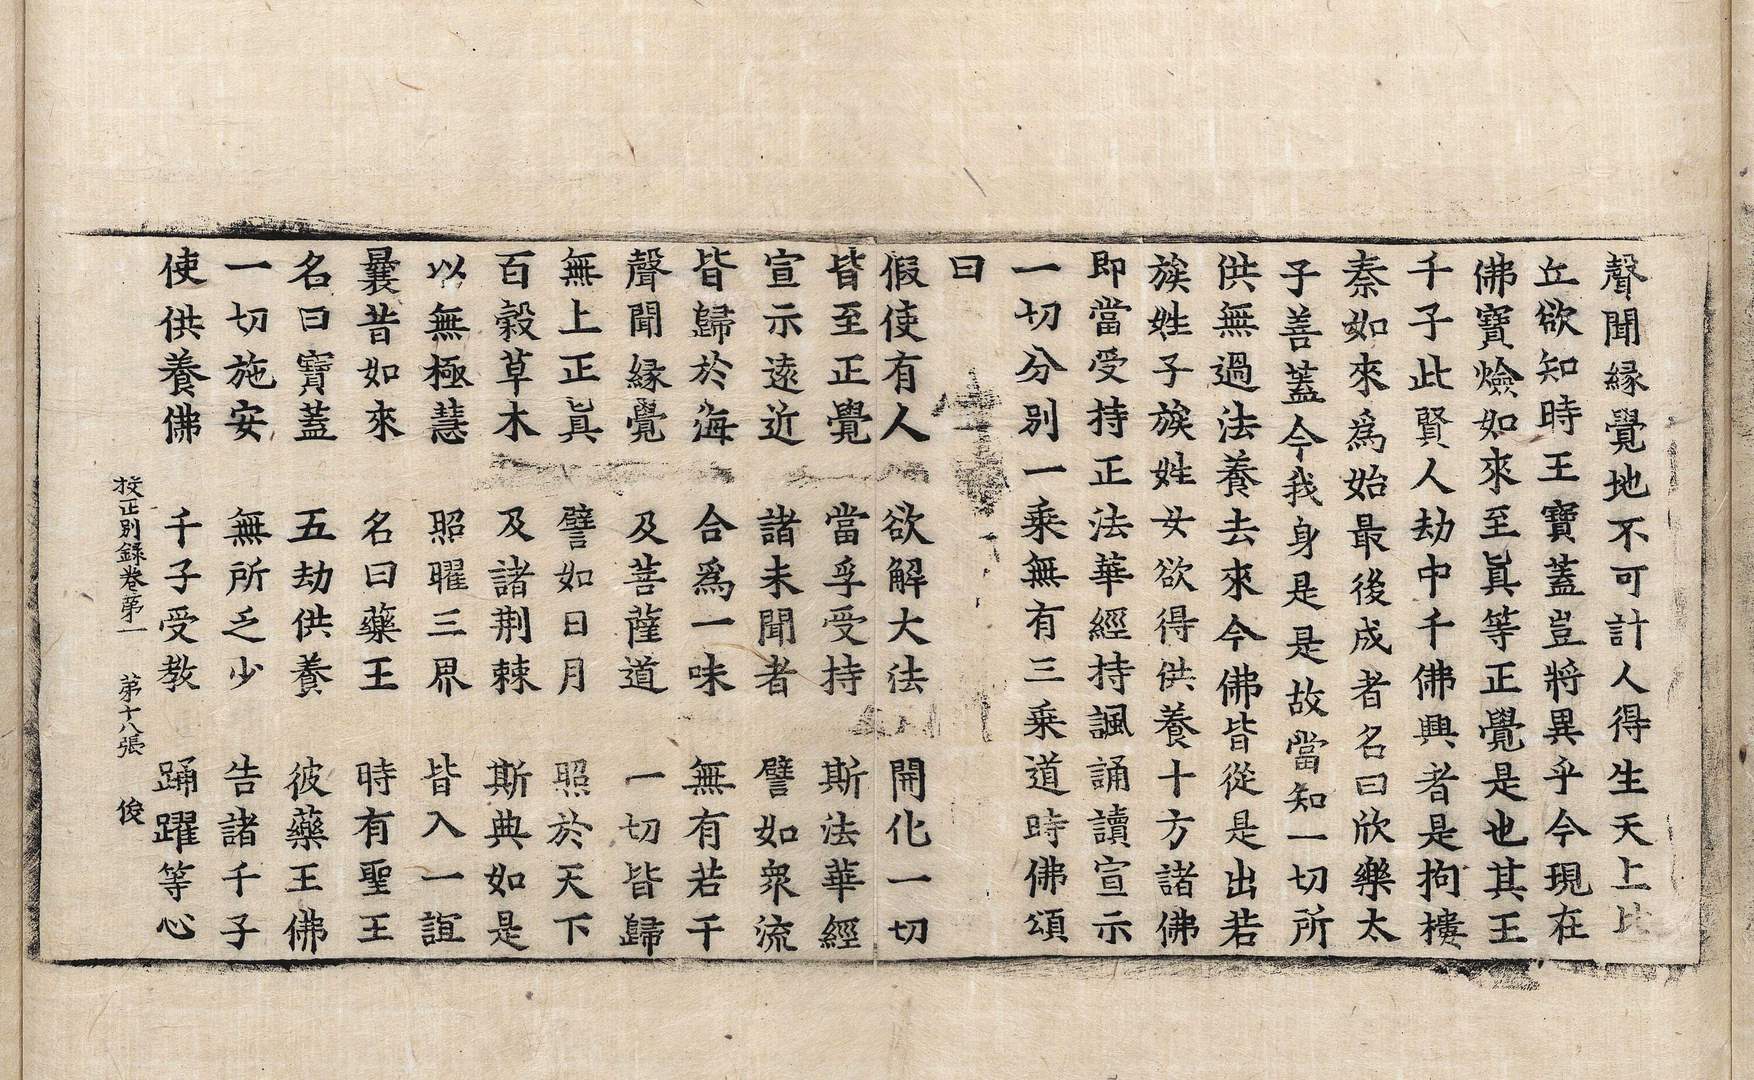 聲聞縁覺地不可計人得生天上比
丘欲知時王寶蓋豈將異乎今現在
佛寶燄如來至眞等正覺是也其王
千子此賢人劫中千佛興者是拘樓
秦如來爲始最後成者名曰欣樂太
子善蓋今我身是是故當知一切所
供無過法養去來今佛皆從是出若
族姓子族姓女欲得供養十方諸佛
即當受持正法華經持諷誦讀宣示
一切分別一乘無有三乘道時佛頌
曰
假使有人　欲解大法　開化一切
皆至正覺　當孚受持　斯法華經
宣示遠近　諸未聞者　譬如衆流
皆歸於海　合爲一味　無有若干
聲聞縁覺　及菩薩道　一切皆歸
無上正眞　譬如日月　照於天下
百穀草木　及諸荆棘　斯典如是
以無極慧　照曜三界　皆入一誼
曩昔如來　名曰藥王　時有聖王
名曰寶蓋　五劫供養　彼藥王佛
一切施安　無所乏少　告諸千子
使供養佛　千子受教　踊躍等心
校正別錄卷第一　第十八張　俊